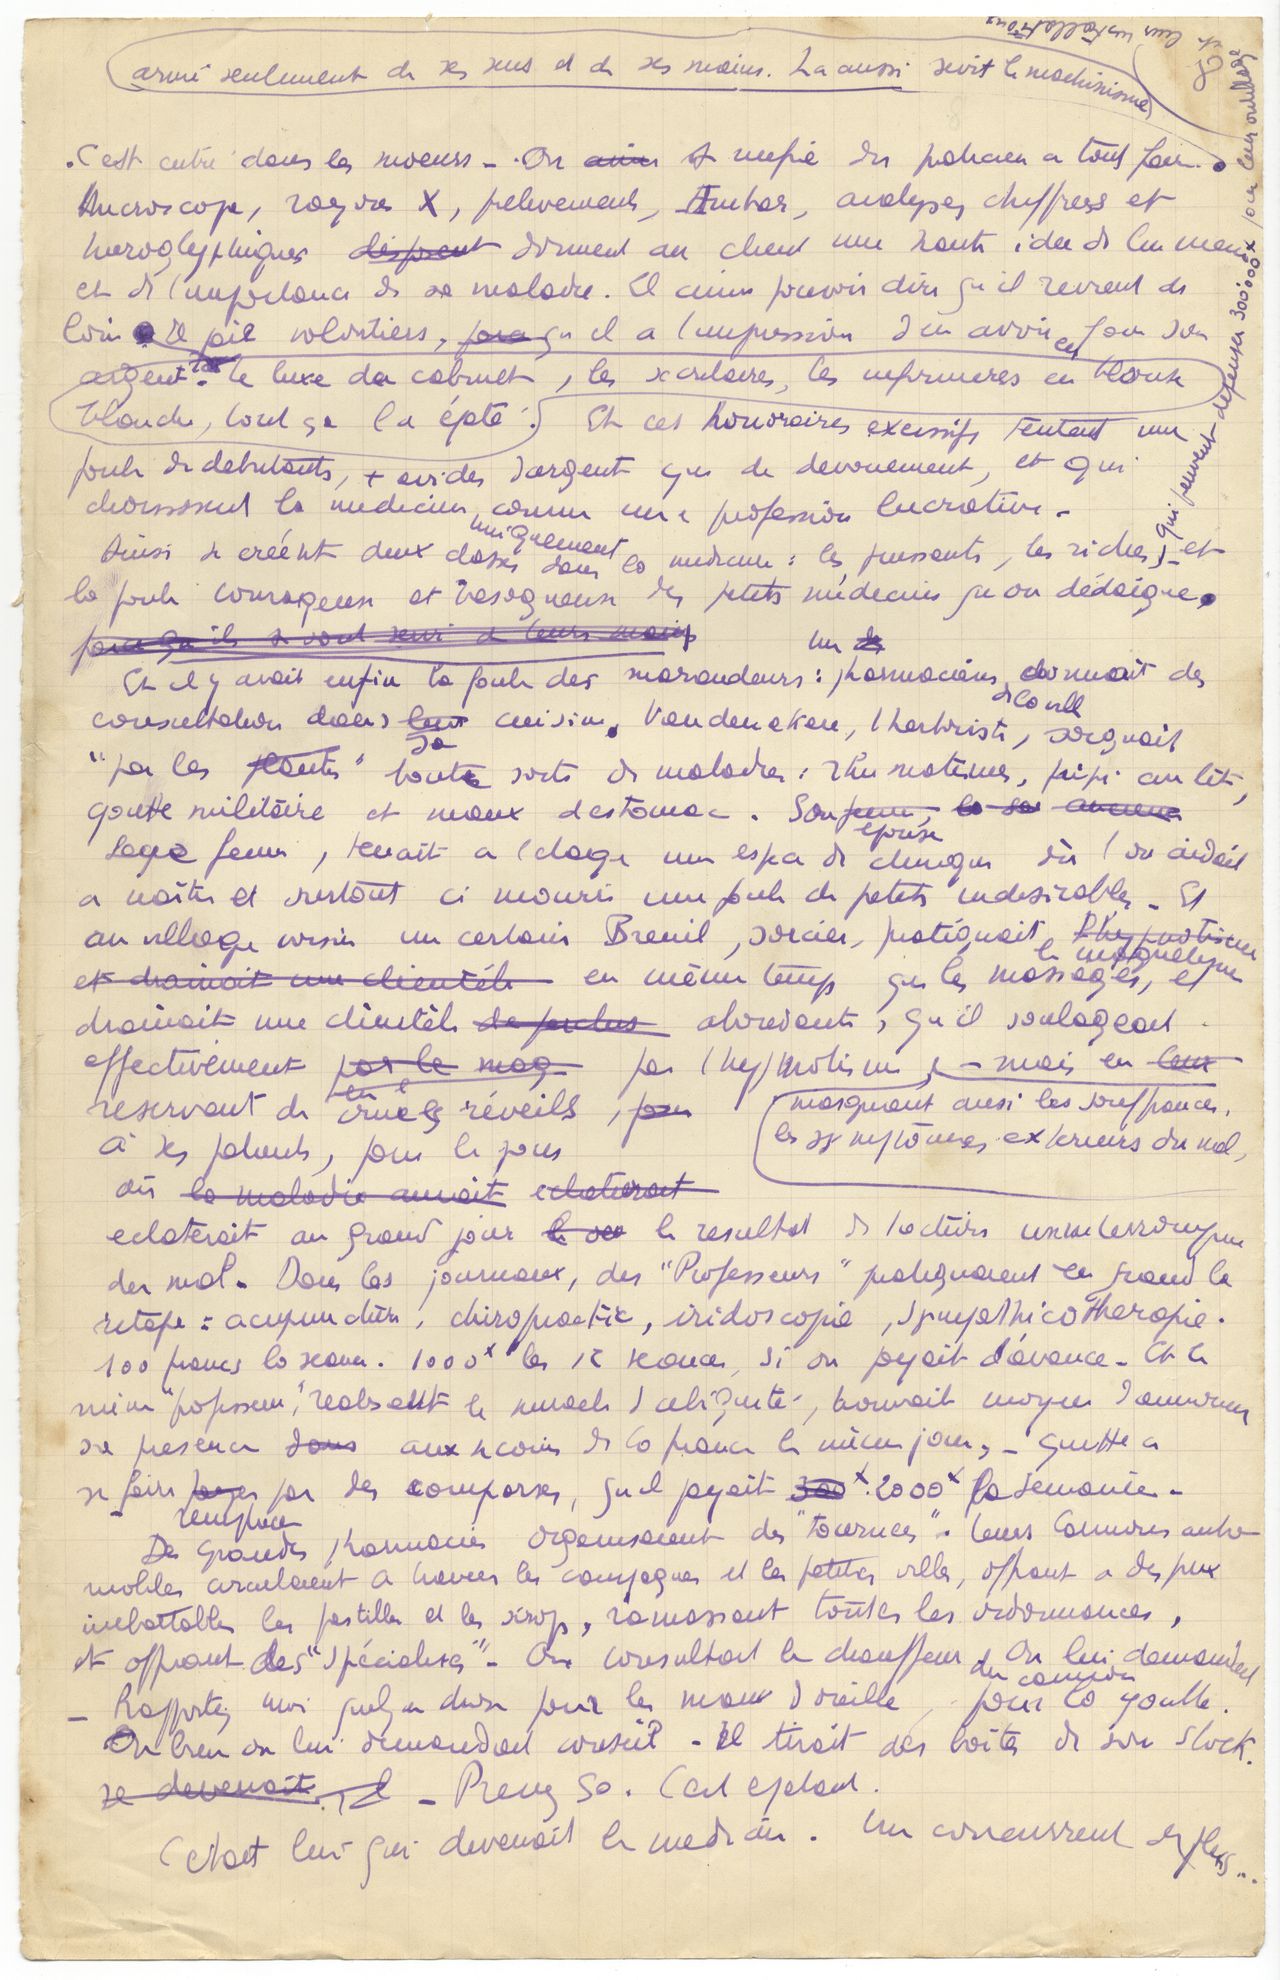 armé seulement de ses sens et de ses mains. Là aussi sévit le machinisme
et leurs installations
qui peuvent dépenser 300'000 x pour leur outillage
. C'est entré dans les moeurs – . On se méfie du praticien a tout faire.
Microscope, rayons X, prelevements, analyses chiffrees et
hieroglyphiques donnent au client une haute idee de
et de l'importance de sa maladie. Il aime pouvoir dire qu'il revient de
loin Il paie volontiers, qu'il a l'impression d'en avoir eu pour son
argent. le luxe du cabinet, les secretaires, les infirmieres en blouse
blanche, tout ça l'a épaté. Et ces honoraires excessifs tentent une
foule de debutants, + avides d'argent que de devouement, et qui
choisissent la medecine comme une profession lucrative –
uniquement
Ainsi se créént deux classes dans la medecine : les puissants, les riches, – et
la foule courageuse et besogneuse des petits médecins qu'on dédaigne.
parce qu'ils se sont servi de leurs mains
un
Et il y avait enfin la foule des maraudeurs : pharmacien, donnait des
consultations dans leur cuisine. Vandenaken, l'herboriste, soignait
sa
"par les plantes" toute sorte de maladies : rhumatismes, pipi au lit,
goutte militaire et maux d'estomac.
sage femme, tenait a l'etage une espece de clinique où l'on aidait
a naître et surtout à mourir une foule de petits indesirables – Et
au village voisin un certain Breuil, sorcier, pratiquait l'hypnotisme
le magnétisme
et drainait une clientèle en même temps que les massages, et
drainait une clientèle abondante, qu'il soulageait
effectivement par le mag par l'hypnotisme, – mais en leur
masquant ainsi les souffrances,
les symptômes exterieurs du mal,
reservant de cruels réveils,
à ses patients, pour le jour
où la maladie aurait eclaterait
eclaterait au grand jour le resultat de l'action ininterrompue
du mal – Dans les journaux, des "Professeurs" pratiquaient en grand la
retape : acupuncture, chiropractie, iridoscopie, sympathicotherapie.
100 francs la seance. 1000x les 12 seances, si on payait d'avance – Et le
même "professeur", realisant le miracle d'ubiquité, trouvait moyen d'annoncer
sa presence dans aux coins de la France le même jour, – quitte a
se faire remplacer par des comparses, qu'il payait 300x 2000x la semaine –
De grandes pharmacies organisaient des "tournees". Leurs camions auto-
mobiles circulaient a travers les campagnes et les petites villes, offrant a des prix
imbattables les pastilles et les sirops, ramassant toutes les ordonnances,
et offrant des "spécialités" – On consultait le chauffeur du camion. On lui demandait
– Rapportez moi quelque chose pour les maux d'oreille, pour la goutte.
Ou bien on lui demandait conseil – Il tirait des boîtes de son stock.
se devenait, – Prenez ça. C'est epatant.
C'etait lui qui devenait le medecin. Un concurrent de plus...